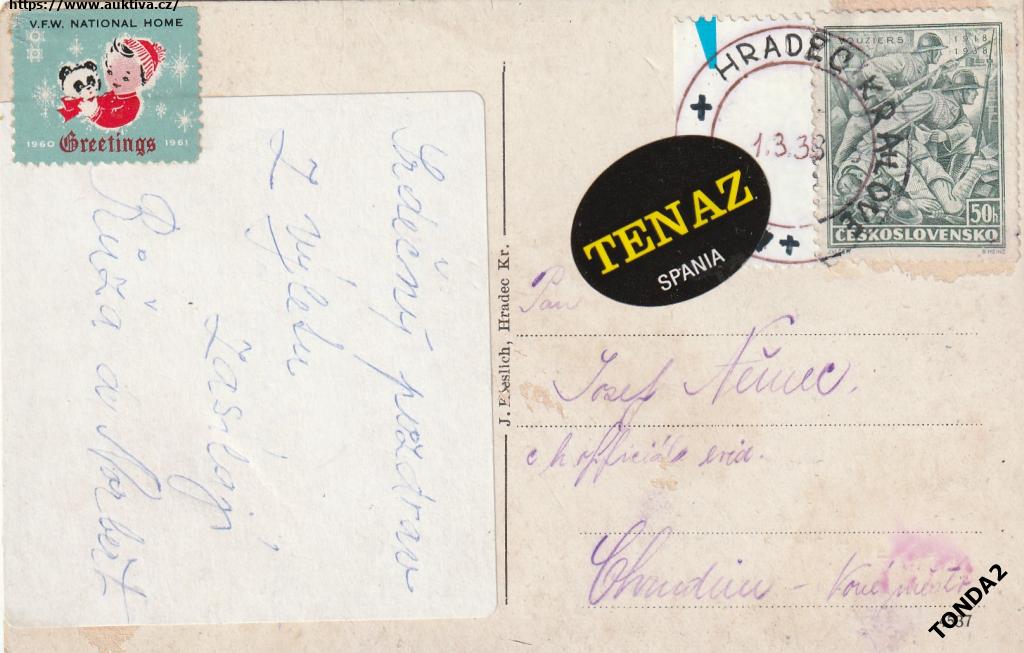 https://www.auktiva.cz/
V.F.W. NATIONAL HOME
1960 Greetings 1961
Srdečný pozdrav
z výletu
zasílají
Růža a Norbert
J. Pieslich, Hradec Kr.
HRADEC KRÁLOVÉ
1.3.38
VOUZIERS 1918 1938
50h
ČESKOSLOVENSKO
TENAZ
SPANIA
Pan
Josef Němec.
c k officiála evid.
Chrudim - Nové město
TONDA2